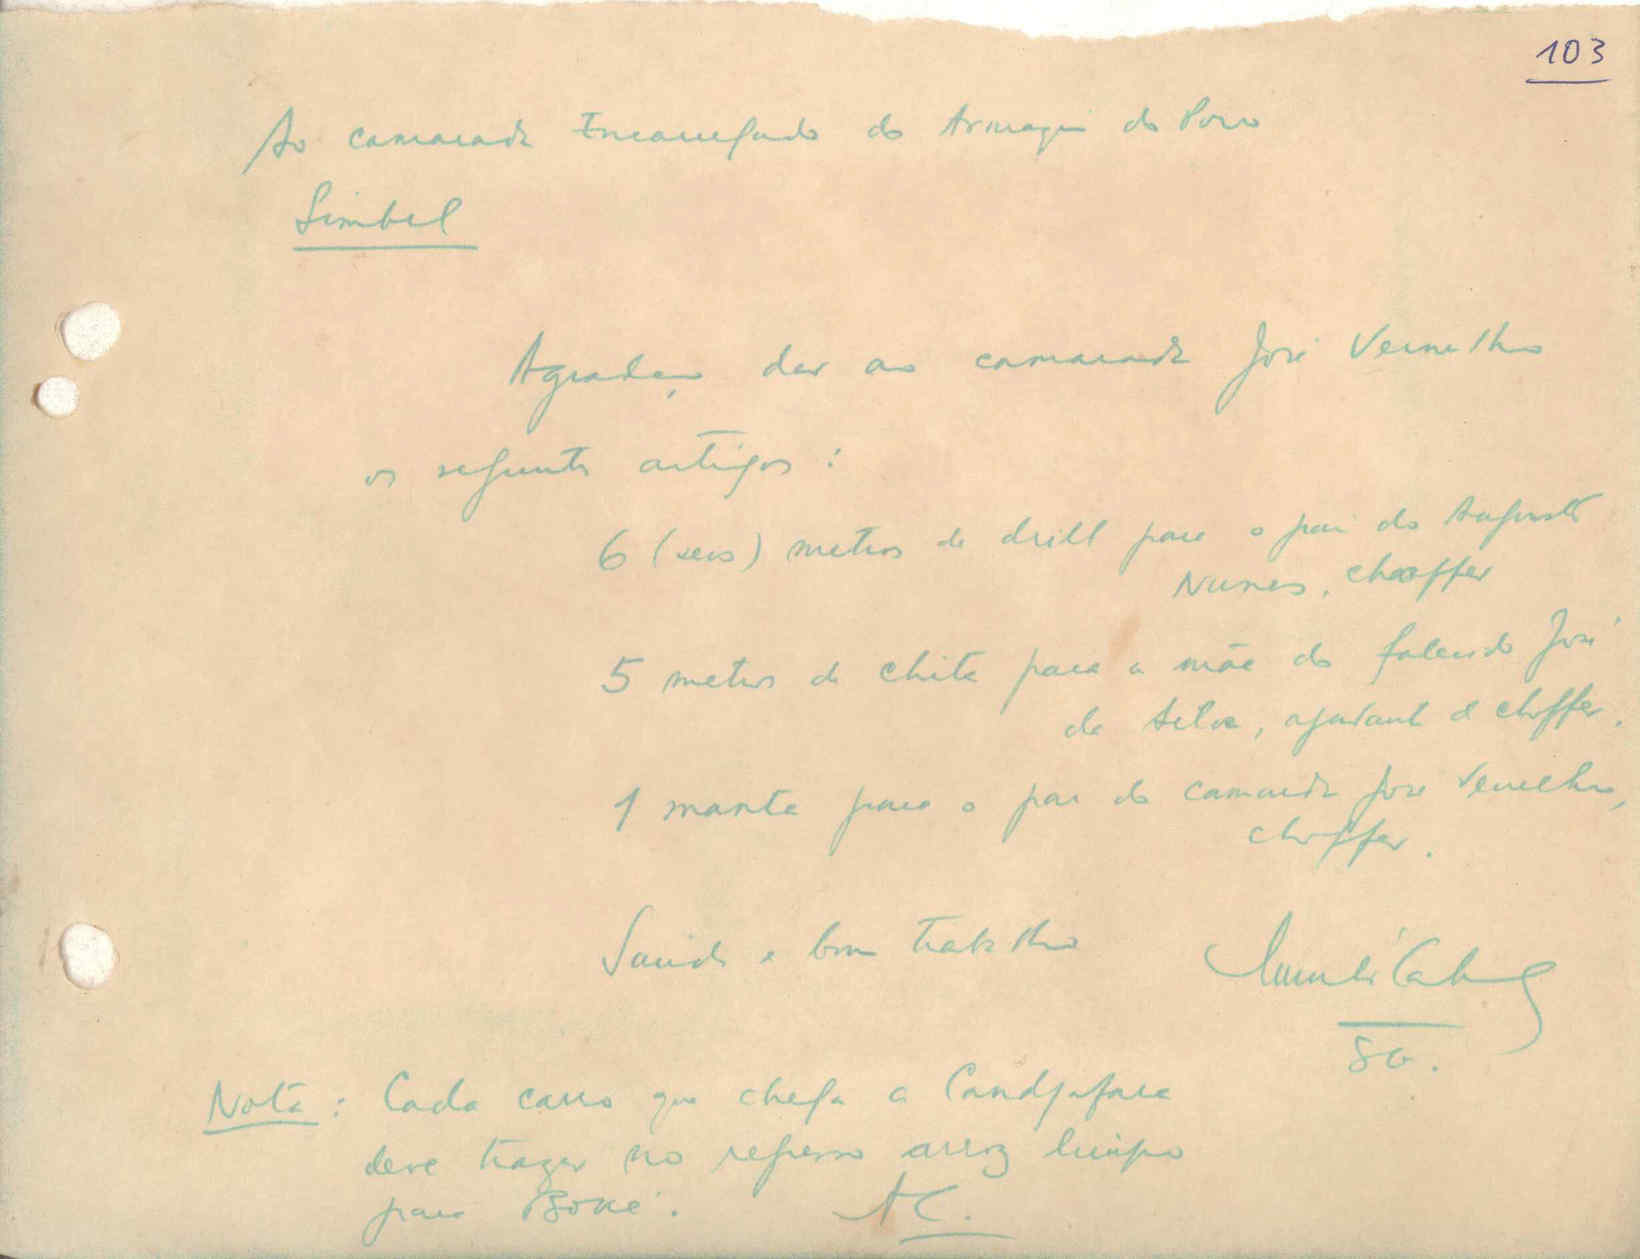 103
Ao camarada Encarregado do Armazem do Povo
Simbel
Agradeço dar ao camarada José Vermelho
os seguintes artigos:
6 (seis) metros de drill para o pai do Augusto
Nunes, chauffer
5 metros de chita para a mãe do falecido José
da Silva, ajudante de chffer.
1 manta para o pai do camarada José Vermelho,
choffer.
Saúde e bom trabalho
Amílcar Cabral
SG.
Nota: Cada carro que chega a Candjafara
deve trazer no regresso arroz limpo
para Boké.
AC.